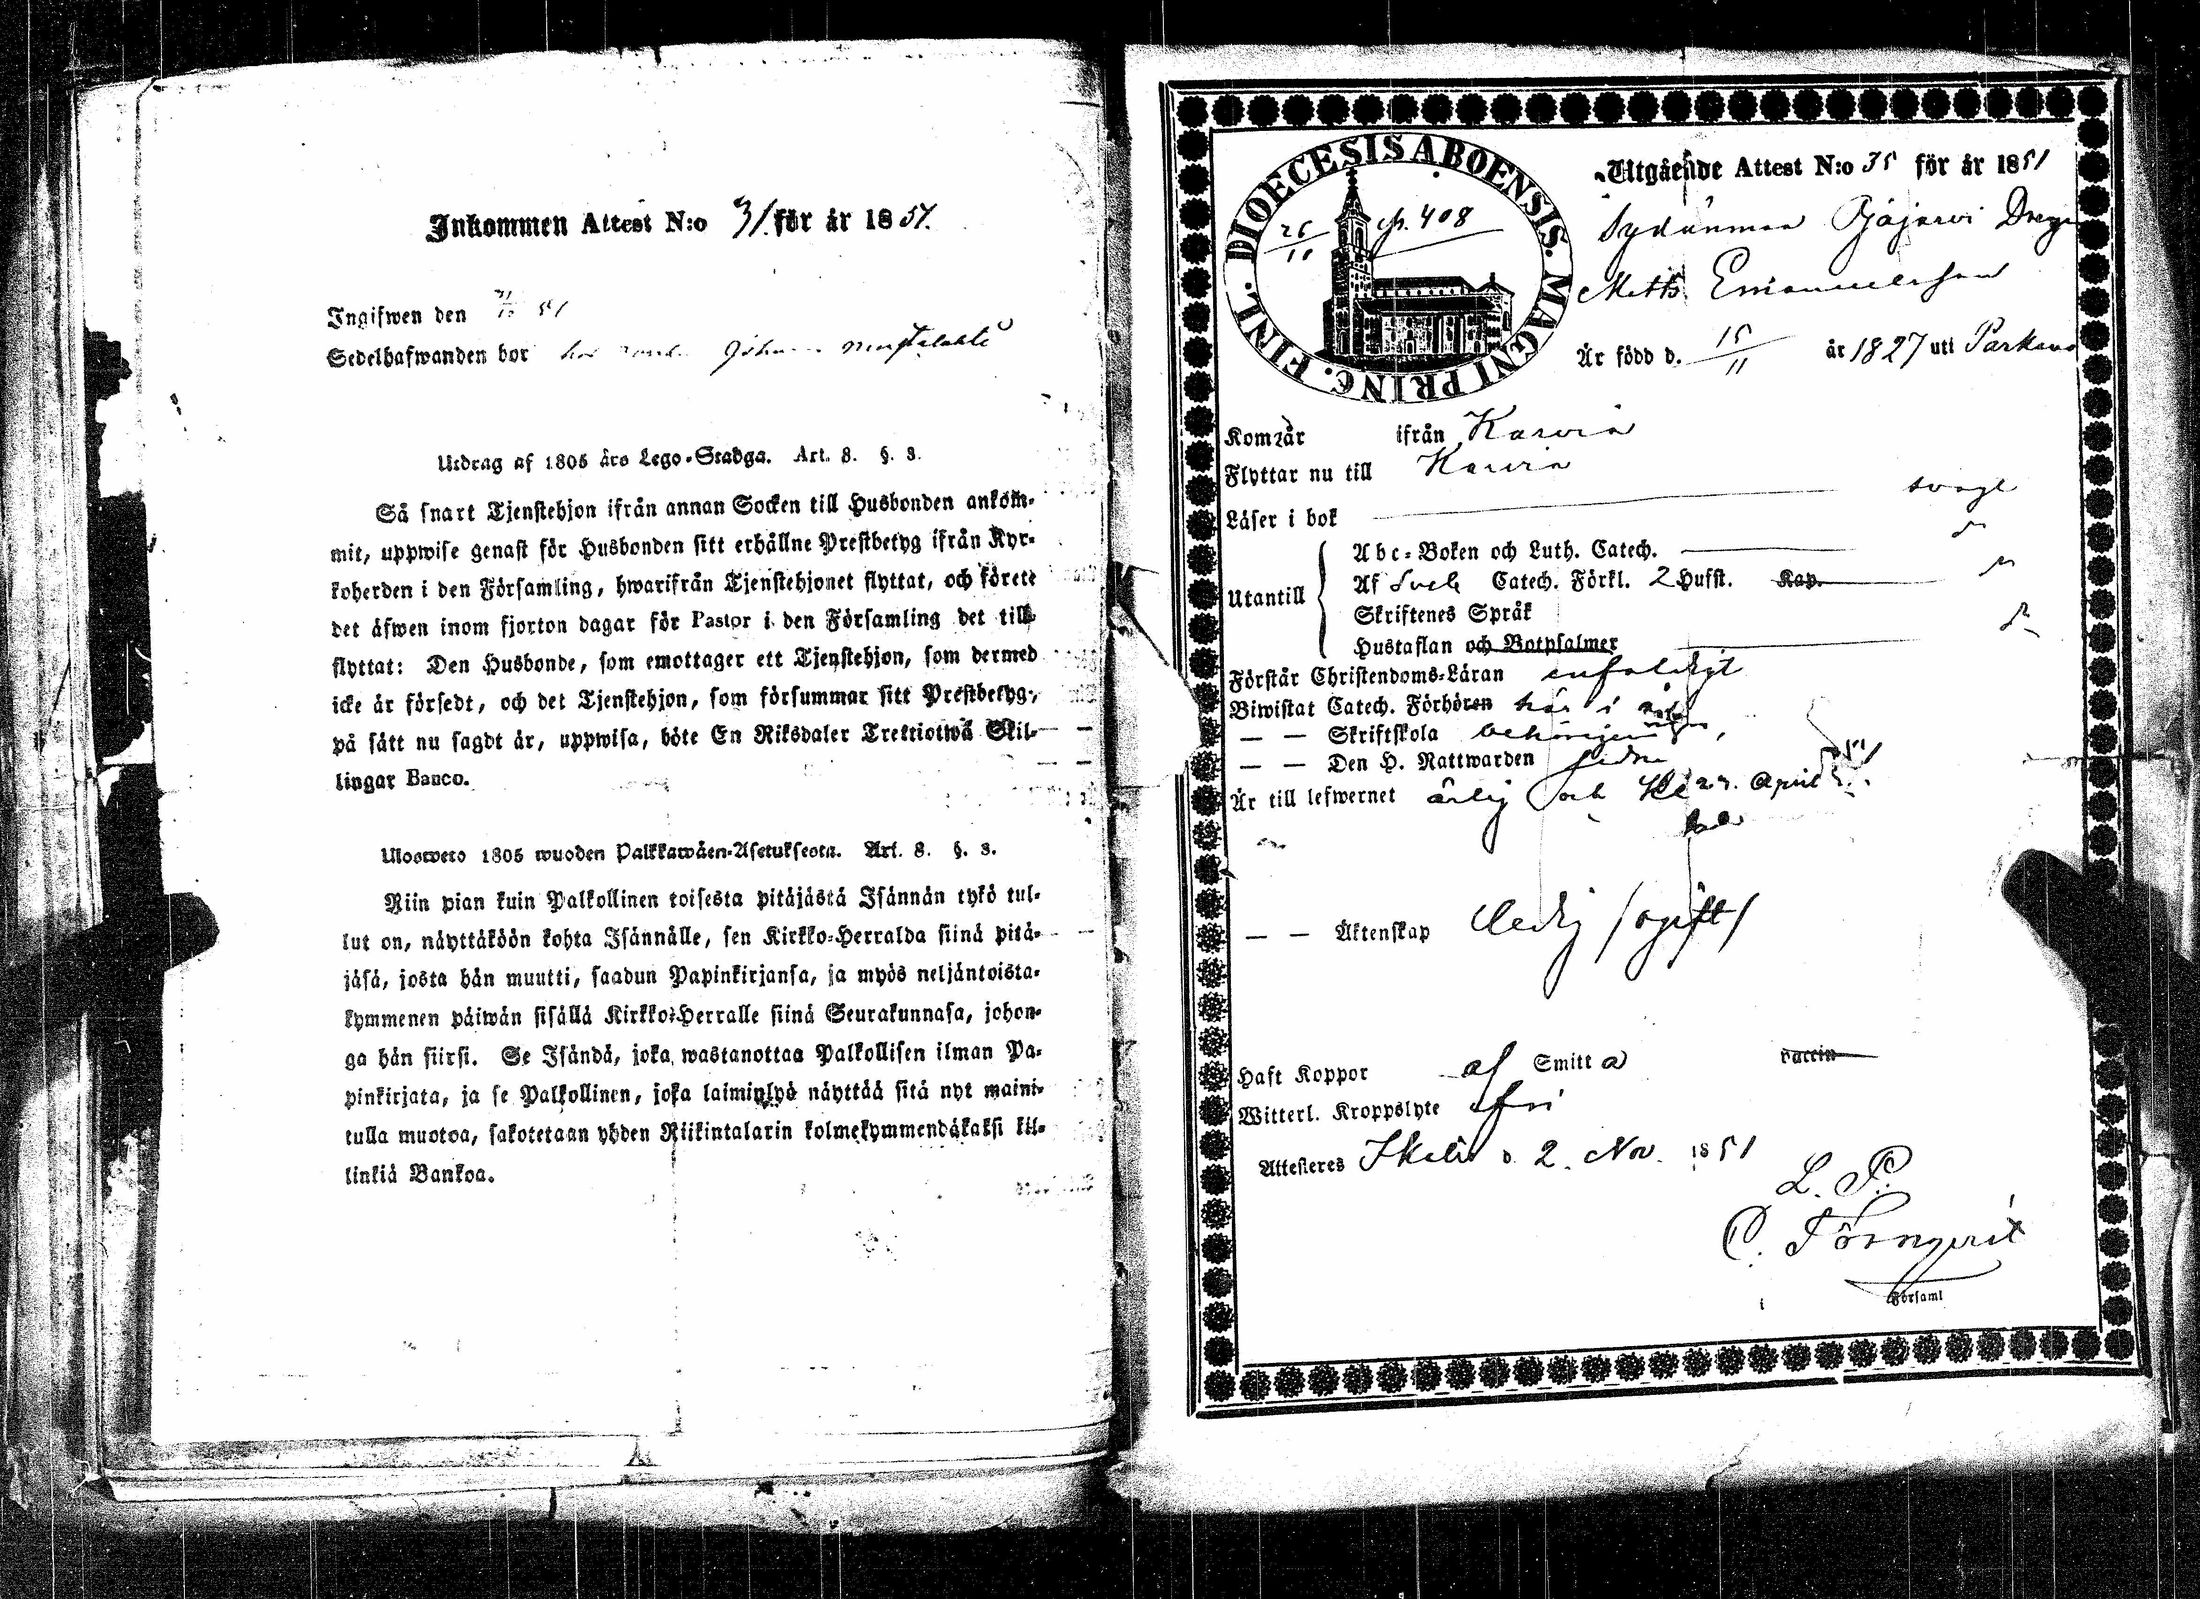 Inkommen Attest N:o 31. för år 1851.
Ingifwen den 51
Sedelhafwanden bor hos Johan
Utdrag af 1805 års Lego-Stadga. Art. 8. §. 3.
Så snart Tjenstehjon ifrån annan Socken till Husbonden ankom-
mit, uppwise genast för Husbonden sitt erhållne Prestbetyg ifrån Kyr-
koherden i den Församling, hwarifrån Tjenstehjonet flyttat, och förete
det äfwen inom fjorton dagar för Pastor i den Församling det till
flyttat: Den Husbonde, som emottager ett Tjenstehjon, som dermed
icke är försedt, och det Tjenstehjon, som försummar sitt Prestbetyg,
på sätt nu sagdt är, uppwisa, böte En Riksdaler Trettiotwå Skil-
lingar Banco.
Ulosweto 1805 wuoden Palkkawäen-Asetuksesta. Art. 8. §. 3.
Niin pian kuin Palkollinen toisesta pitäjästä Isännän tykö tul-
lut on, näyttäköön kohta Isännälle, sen Kirkko-Herralda siinä pitä-
jäsä, josta hän muutti, saadun Papinkirjansa, ja myös neljäntoista-
kymmenen päiwän sisällä Kirkko-Herralle siinä Seurakunnasa, johon-
ga hän siirsi. Se Isändä, joka wastanottaa Palkollisen ilman Pa-
pinkirjata, ja se Palkollinen, joka laiminlyö näyttää sitä nyt maini-
tulla muotoa, sakotetaan yhden Riikintalarin kolmekymmendäkaksi kil-
linkiä Bankoa.
DIOECESIS ABOENSIS. MAGNI PRINC. FINL.
26/10 p. 408
Utgående Attest N:o 35 för år 1851
Sydänmaa Dreng
Matts Emanuelsson
Är född d. 15/11 år 1827 uti Parkano
Kom år ifrån Karvia
Flyttar nu till Karvia
Läser i bok svagt
Utantill
Abc-Boken och Luth. Catech.
Af Sveb Catech. Förkl. 2 Hufst. Kap.
Skriftenes Språk
Hustaflan och Botpsalmer
Förstår Christendoms-Läran enfaldigt
Biwistat Catech. Förhören här i
— — Skriftskola behörigen
— — Den H. Nattwarden sedn
Är till lefwernet ärlig och April
— — Äktenskap ledig /ogift/
Haft Koppor af Smitta vaccin
Witterl. Kroppslyte fri
Attesteres Ikalis d. 2. Nov. 1851
L. P.
C. Törnqvist
i Församl